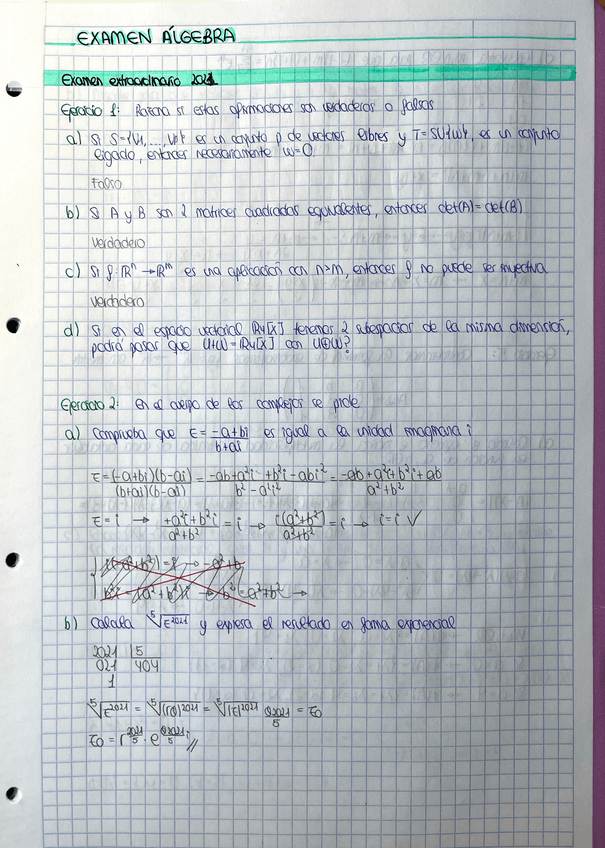 EXAMEN ÁLGEBRA
Examen extraordinario 2021
Ejercicio 1: Razona si estas afirmaciones son verdaderas o falsas
a) Si S={v1,...,vp} es un conjunto p de vectores libres y T=SU{w}, es un conjunto
ligado, entonces necesariamente w=0.
Falso
b) Si A y B son 2 matrices cuadradas equivalentes, entonces det(A)=det(B)
Verdadero
c) Si f:ℝⁿ→ℝᵐ es una aplicación con n>m, entonces f no puede ser inyectiva
Verdadero
d) Si en el espacio vectorial ℝ4[x] tenemos 2 subespacios de la misma dimensión,
podrá pasar que U+W=ℝ4[x] con U⊕W?
Ejercicio 2: En el cuerpo de los complejos se pide
a) Comprueba que z = (-a+bi)/(b+ai) es igual a la unidad imaginaria i
z = (-a+bi)(b-ai)/(b+ai)(b-ai) = (-ab+a²i+b²i-abi²)/(b²-a²i²) = (-ab+a²i+b²i+ab)/(a²+b²)
z=i → (+a²i+b²i)/(a²+b²) = i → i(a²+b²)/(a²+b²) = i → i=i ✓
b) Calcula ⁵√z²⁰²¹ y expresa el resultado en forma exponencial
2021 |5
021 404
1
⁵√z²⁰²¹ = ⁵√(rθ)²⁰²¹ = ⁵√|z|²⁰²¹ θ2021/5 = z0
z0 = r^(2021/5) · e^(θ2021/5 i) //